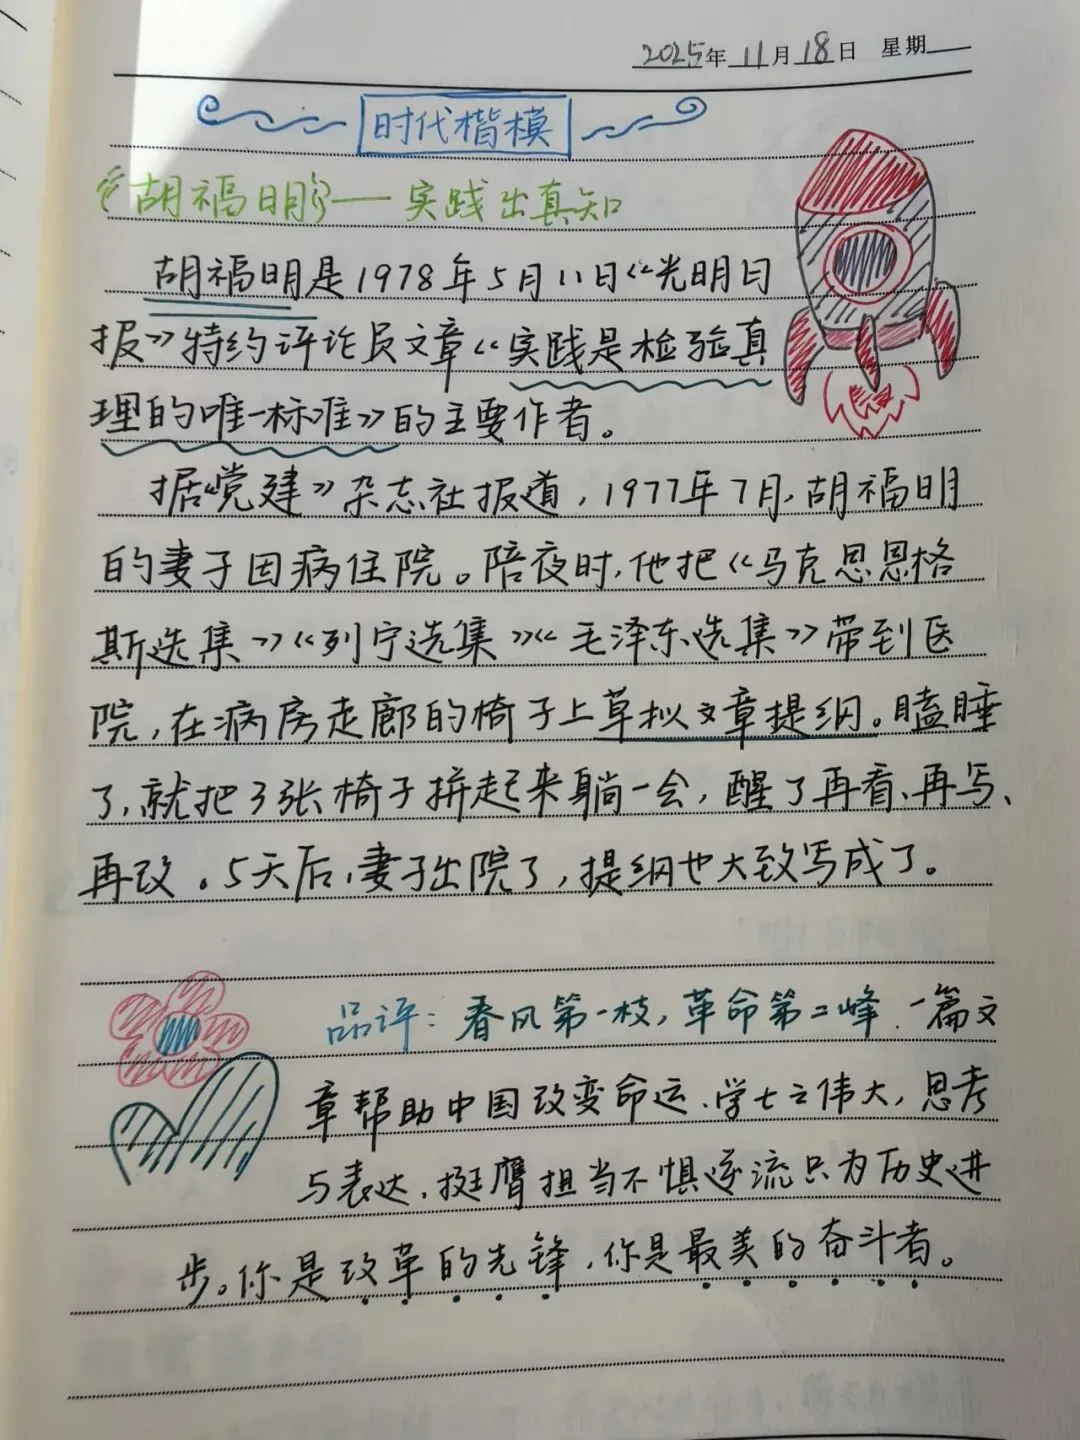 2025年11月18日 星期
时代楷模
《胡福明》——实践出真知
胡福明是1978年5月11日《光明日
报》特约评论员文章《实践是检验真
理的唯一标准》的主要作者。
据《党建》杂志社报道,1977年7月,胡福明
的妻子因病住院。陪夜时,他把《马克思恩格
斯选集》《列宁选集》《毛泽东选集》带到医
院,在病房走廊的椅子上草拟文章提纲。瞌睡
了,就把3张椅子拼起来躺一会,醒了再看、再写、
再改。5天后,妻子出院了,提纲也大致写成了。
品评:春风第一枝,革命第二峰,一篇文
章帮助中国改变命运、学士之伟大,思考
与表达,挺膺担当不惧逆流只为历史进
步。你是改革的先锋,你是最美的奋斗者。